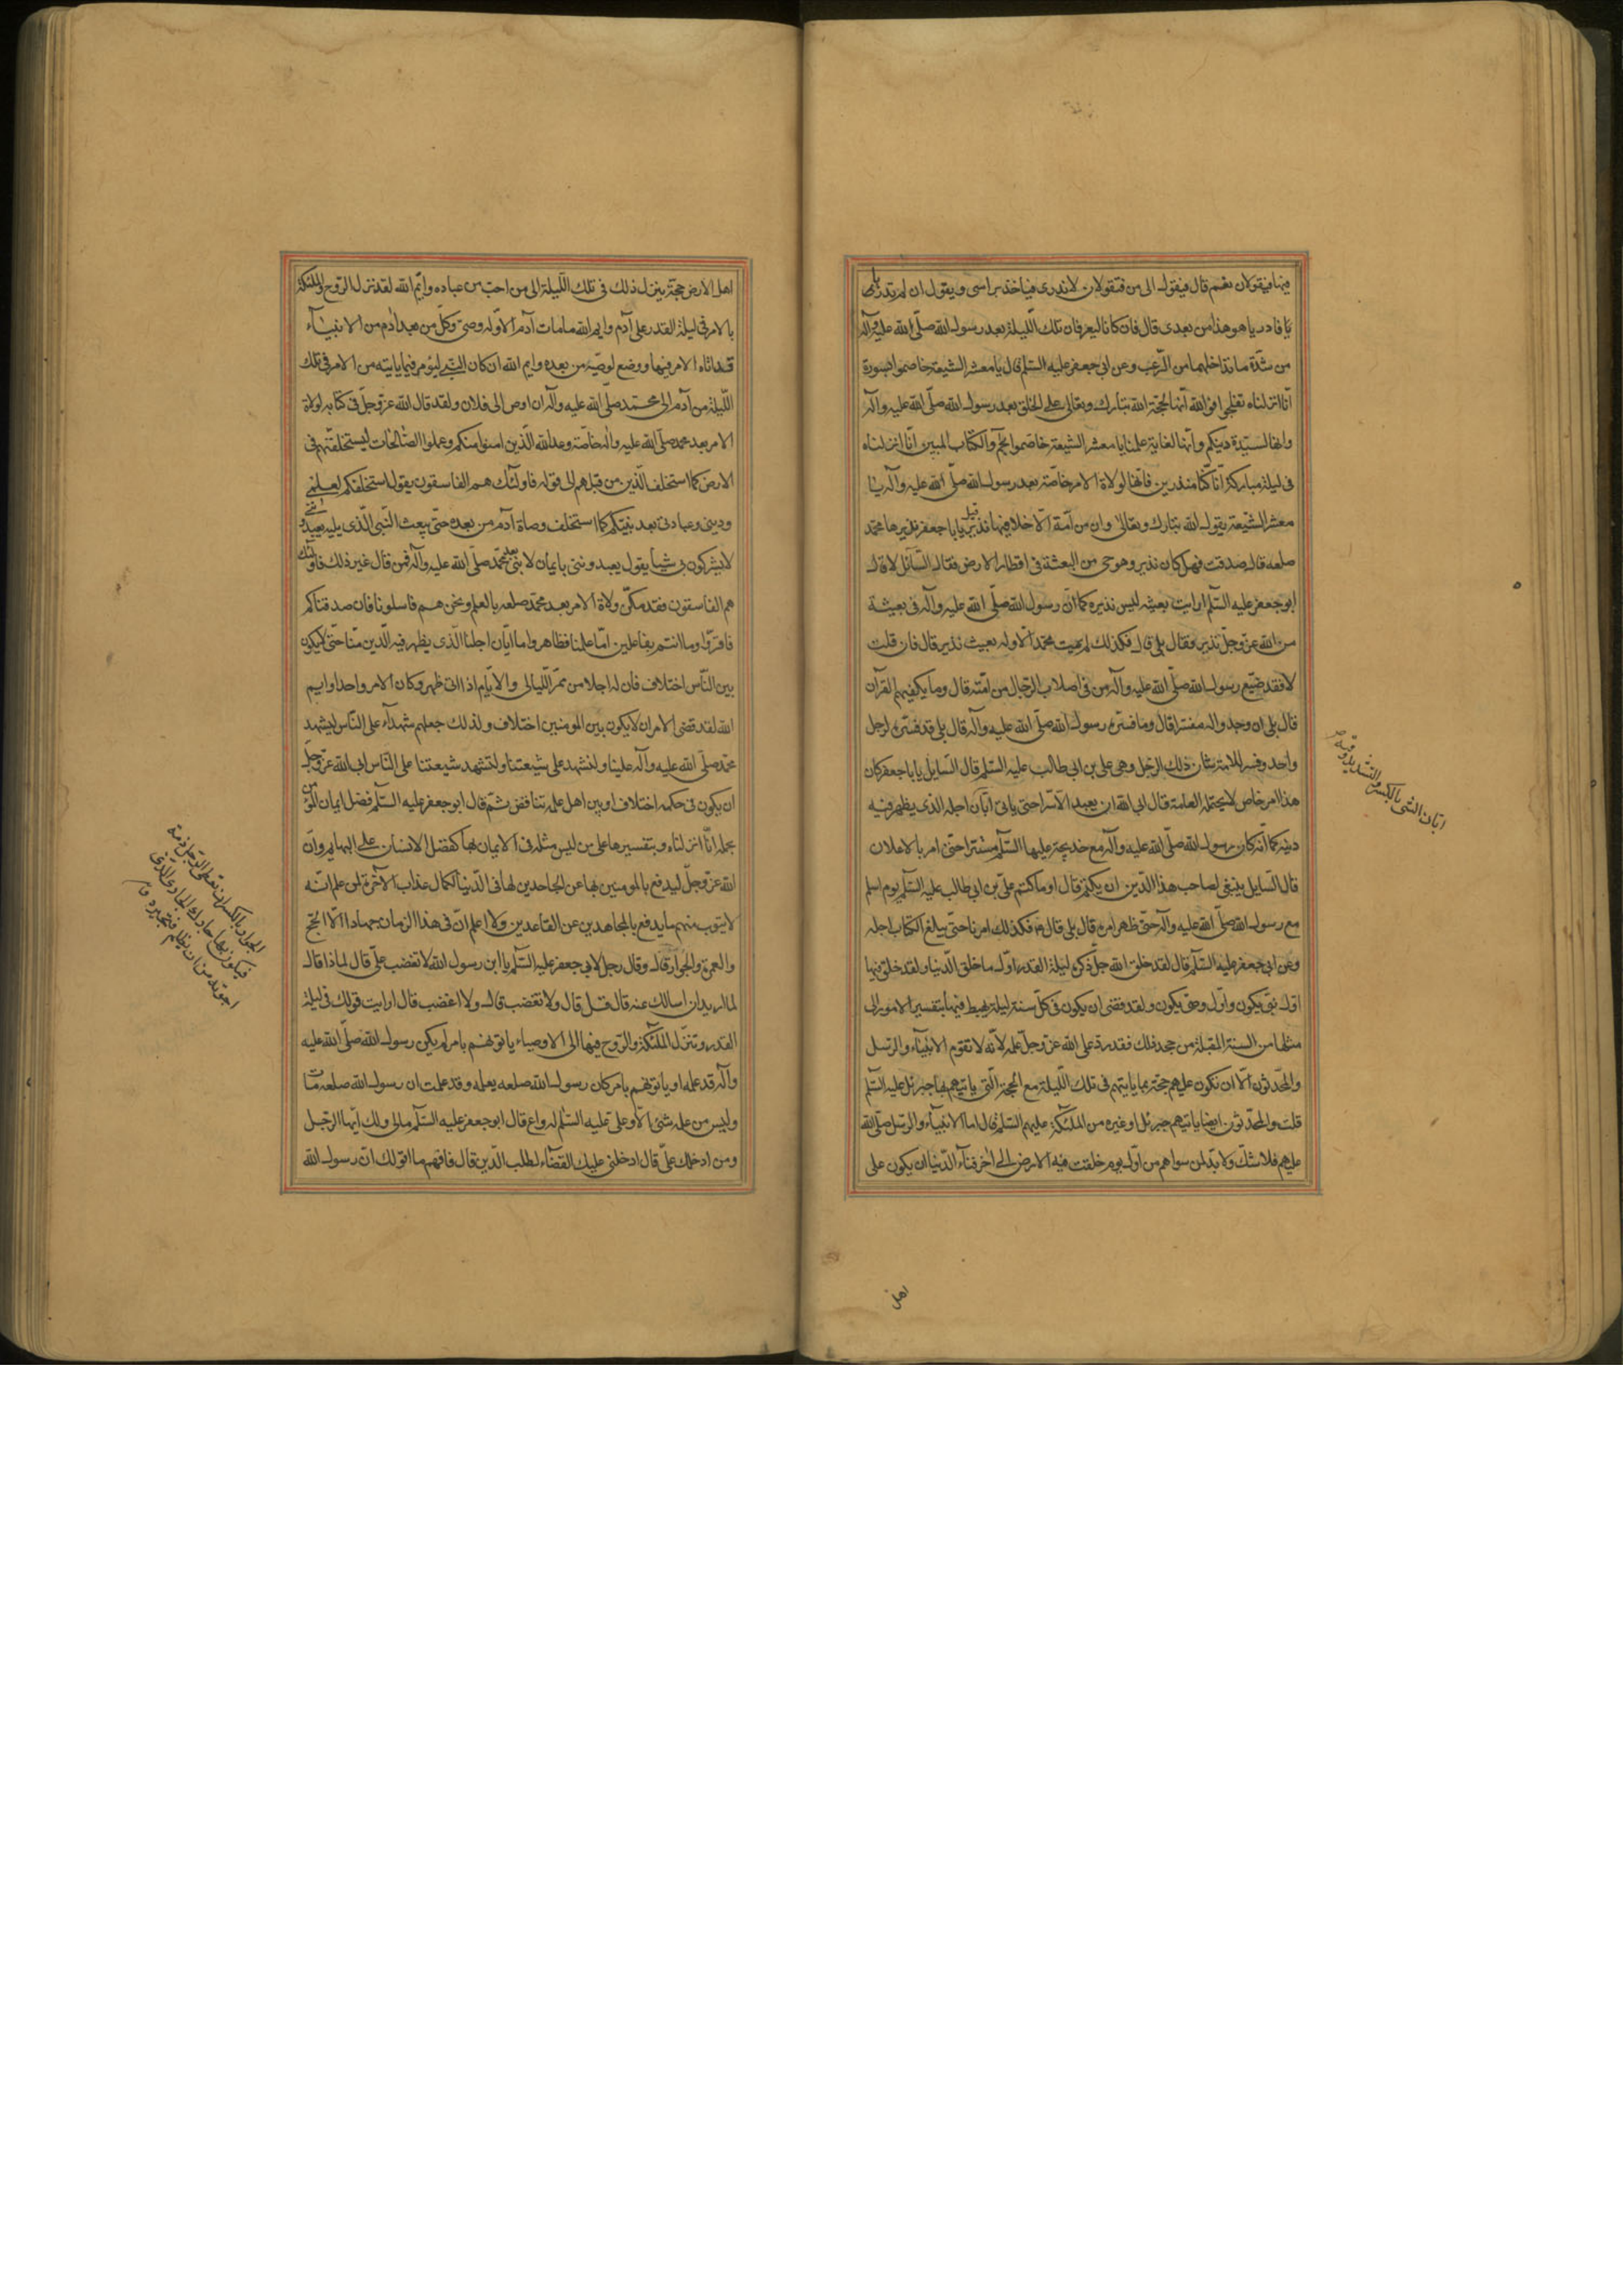 فيها فيقولان نعم قال فيقول الى من فيقولان لا ندرى فياخذ براسى ويقول ان لم تدريا
يا فادريا هو هذا من بعدى قال فان كانا ليعرفان تلك الليلة بعد رسول الله صلّى الله عليه وآله
من شدّة ما تداخلهما من الرّعب وعن ابى جعفر عليه السّلم قال يا معشر الشيعة خاصموا بسورة
انّا انزلناه تفلجوا فو الله انّها لحجّة الله تبارك وتعالى على الخلق بعد رسول الله صلّى الله عليه وآله
وانها لسيّدة دينكم وانّها لغاية علمنا يا معشر الشيعة خاصموا بحم والكتاب المبين انّا انزلناه
فى ليلة مباركة انّا كنّا منذرين فانّها لولاة الامر خاصّة بعد رسول الله صلّى الله عليه وآله يا
معشر الشّيعة يقول الله تبارك وتعالى وان من امّة الّا خلا فيها نذير قيل يا با جعفر نذيرها محمّد
صلعم قال صدقت فهل كان نذير وهو حى من البعثة فى اقطار الارض فقال السّائل لا قال
ابو جعفر عليه السّلم ارايت بعيثه ليس نذيره كما انّ رسول الله صلّى الله عليه وآله فى بعيثة
من الله عزّ وجلّ نذير فقال بلى قال فكذلك لم يمت محمّد الّا وله بعيث نذير قال فان قلت
لا فقد ضيّع رسول الله صلّى الله عليه وآله من فى اصلاب الرّجال من امّته قال وما يكفيهم القرآن
قال بلى ان وجدوا له مفسّرا قال وما فسّره رسول الله صلّى الله عليه وآله قال بلى قد فسّره لرجل
واحد وفسر للامّة شان ذلك الرّجل وهى على بن ابى طالب عليه السّلم قال السّايل يا با جعفر كان
هذا امر خاص لا يحتمله العامة قال ابى الله ان يعبد الّا سرّا حتى ياتى ابّان اجله الذى يظهر فيه
دينه كما انّه كان رسول الله صلّى الله عليه وآله مع خديجة عليها السّلم مستترا حتى امر بالاعلان
قال السّايل ينبغى لصاحب هذا الدّين ان يكتم قال او ما كتم علىّ بن ابى طالب عليه السّلم يوم اسلم
مع رسول الله صلّى الله عليه وآله حتّى ظهر امره قال بلى قال فكذلك امرنا حتّى يبلغ الكتاب اجله
وعن ابى جعفر عليه السّلم قال لقد خلق الله جلّ ذكره ليلة القدر اوّل ما خلق الدّنيا ولقد خلق فيها
اوّل نبىّ يكون واوّل وصىّ يكون ولقد قضى ان يكون فى كلّ سنة ليلة يهبط فيها بتفسير الامور الى
مثلها من السنة المقبلة من جحد ذلك فقد ردّ على الله عزّ وجلّ علمه لانّه لا تقوم الانبيآء والرّسل
والمحدّثون الّا ان تكون عليهم حجّة بما ياتيهم فى تلك اللّيلة مع الحجّة الّتى ياتيهم بها جبرئل عليه السّلم
قلت والمحدّثون ايضا ياتيهم جبرئل او غيره من الملئكة عليهم السّلم قال اما الانبيآء والرّسل صلّى الله
عليهم فلا شكّ ولا بدّ لمن سواهم من اوّل يوم خلقت فيه الارض الى آخر فنآء الدّنيا ان يكون على
ابّان الشى بالكسر والتشديد وقته
اهل
اهل الارض حجّة ينزل ذلك فى تلك اللّيلة الى من احبّ من عباده وايم الله لقد نزل الرّوح والملئكة
بالامر فى ليلة القدر على آدم وايم الله ما مات آدم الّا وله وصىّ وكلّ من بعد آدم من الانبيآء
قد اتاه الامر فيها ووضع لوصيّه من بعده وايم الله ان كان النّبى ليؤمر فيما ياتيه من الامر فى تلك
اللّيلة من آدم الى محمّد صلّى الله عليه وآله ان اوص الى فلان ولقد قال الله عزّ وجلّ فى كتابه لولاة
الامر بعد محمد صلّى الله عليه وآله خاصّة وعد الله الّذين امنوا منكم وعملوا الصّالحات ليستخلفنّهم فى
الارض كما استخلف الّذين من قبلهم الى قوله فاولئك هم الفاسقون يقول استخلفكم لعلمى
ودينى وعبادتى بعد نبيّكم كما استخلف وصاة آدم من بعده حتّى يبعث النّبى الّذى يليه يعبدوننى
لا يشركون بى شيئا يقول يعبدوننى بايمان لا نبىّ بعد محمّد صلّى الله عليه وآله فمن قال غير ذلك فاولئك
هم الفاسقون فقد مكّن ولاة الامر بعد محمّد صلعم بالعلم ونحن هم فاسلونا فان صدقناكم
فاقرّوا وما انتم بفاعلين امّا علمنا فظاهر واما ابّان اجلنا الّذى يظهر فيه الدّين منّا حتّى لا يكون
بين النّاس اختلاف فان له اجلا من ممرّ اللّيالى والايّام اذا اتى ظهر وكان الامر واحدا وايم
الله لقد قضى الامر ان لا يكون بين المومنين اختلاف ولذلك جعلهم شهدآء على النّاس ليشهد
محمّد صلّى الله عليه وآله علينا ولنشهد على شيعتنا ولتشهد شيعتنا على النّاس ابى الله عزّ وجلّ
ان يكون فى حكمه اختلاف او بين اهل علمه تناقض ثمّ قال ابو جعفر عليه السّلم فضل ايمان المؤمن
بجمله انّا انزلناه وبتفسيرها على من ليس مثله فى الايمان بها كفضل الانسان على البهايم وانّ
الله عزّ وجلّ ليدفع بالمومنين بها عن الجاحدين لها فى الدّنيا لكمال عذاب الآخرة لمن علم انّه
لا يتوب منهم ما يدفع بالمجاهدين عن القاعدين ولا اعلم انّ فى هذا الزمان جهادا الّا الحجّ
والعمرة والجوار قال وقال رجل لابى جعفر عليه السّلم يا ابن رسول الله لا تغضب علىّ قال لماذا قال
لما اريد ان اسالك عنه قال قل قال ولا تغضب قال ولا اغضب قال ارايت قولك فى ليلة
القدر وتنزّل الملئكة والرّوح فيها الى الاوصياء ياتونهم بامر لم يكن رسول الله صلّى الله عليه
وآله قد علمه او ياتونهم بامر كان رسول الله صلعم يعلمه وقد علمت ان رسول الله صلعم مات
وليس من علمه شئ الّا وعلىّ عليه السّلم له واع قال ابو جعفر عليه السّلم مالى ولك ايّها الرّجل
ومن ادخلك علىّ قال ادخلنى عليك القضآء لطلب الدّين قال فافهم ما اقول لك انّ رسول الله
الجوار بالكسر ان تعطى الرجل ذمة
فيكون بها جارك